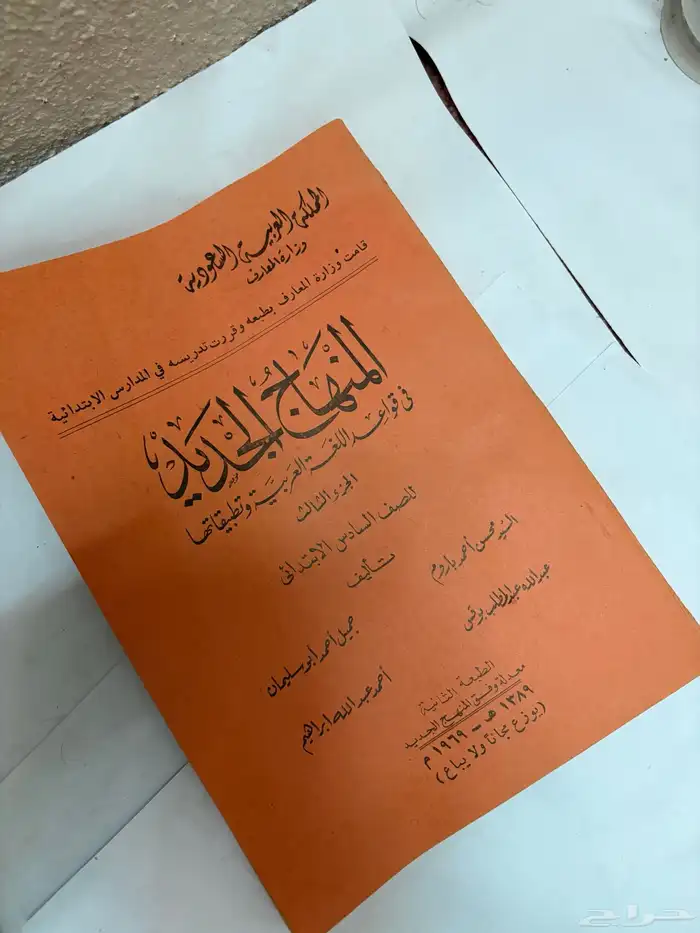 المملكة العربية السعودية
وزارة المعارف
قامت وزارة المعارف بطبعه وقررت تدريسه في المدارس الابتدائية
المنهاج الجديد
في قواعد اللغة العربية وتطبيقاتها
الجزء الثالث
للصف السادس الابتدائي
تأليف
السيد محسن أحمد باروم
جميل أحمد أبو سليمان
عبد الله عبد المطلب بوقس
أحمد عبد الله إبراهيم
الطبعة الثانية
معدلة وفق المنهج الجديد
١٣٨٩ هـ - ١٩٦٩ م
(يوزع مجاناً ولا يباع)
حراج